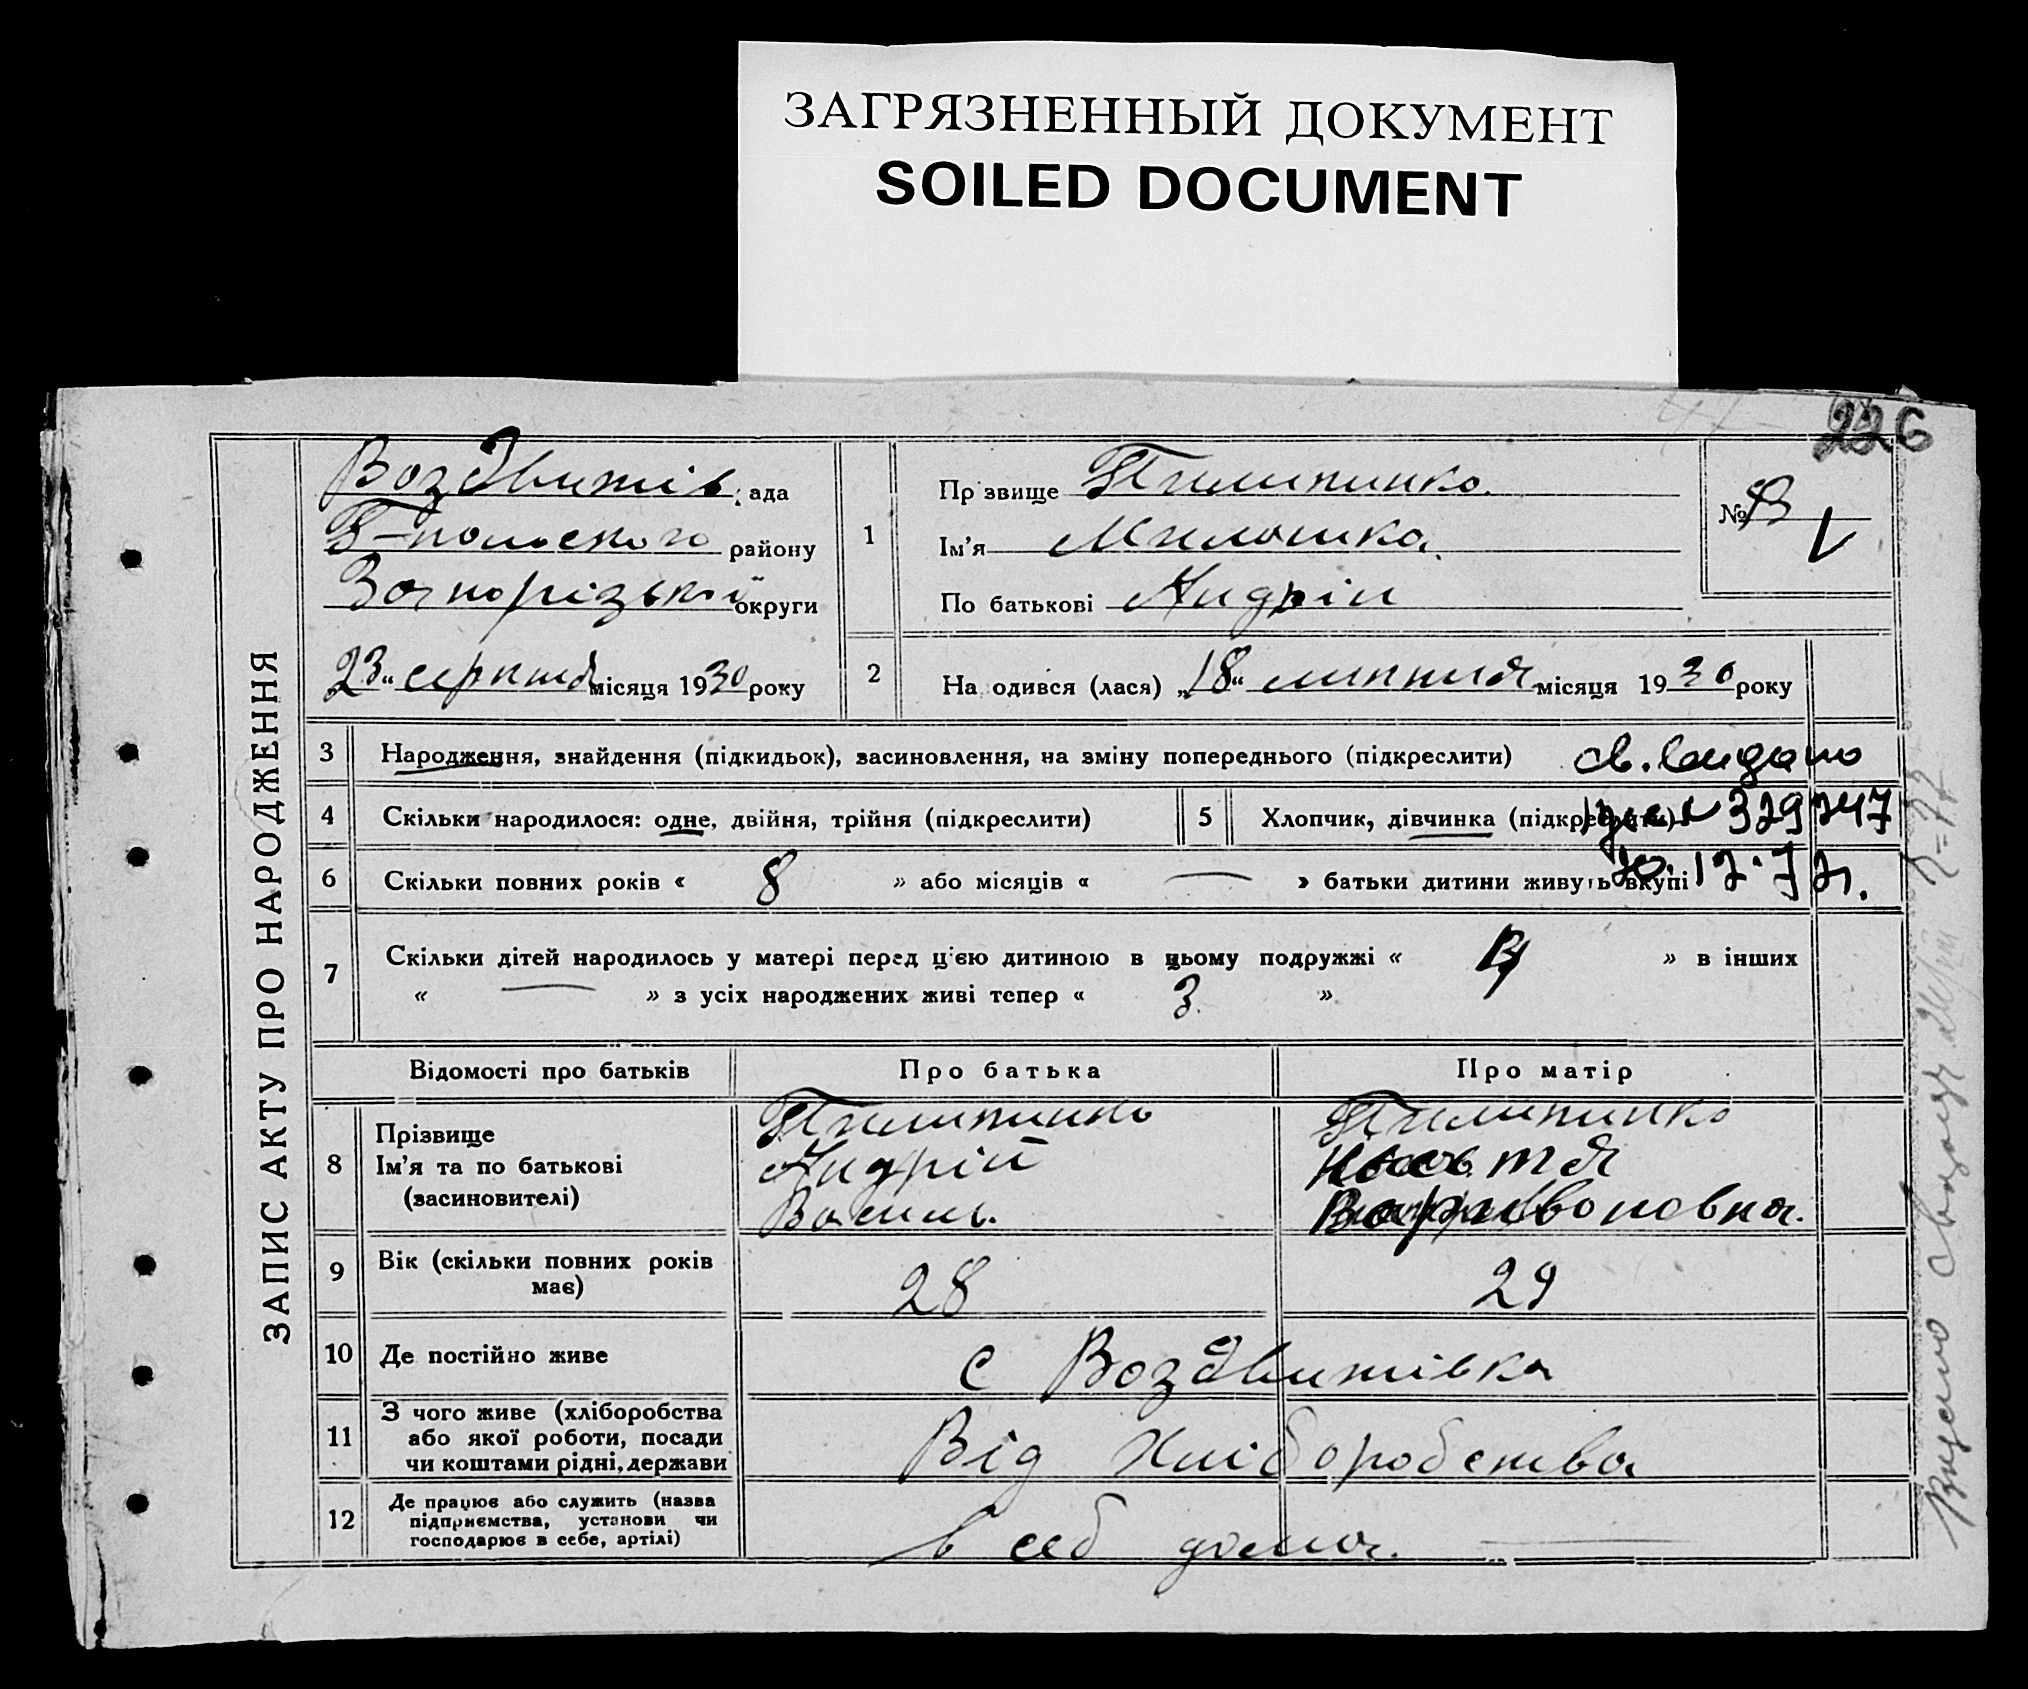 ЗАГРЯЗНЕННЫЙ ДОКУМЕНТ
SOILED DOCUMENT
226
ЗАПИС АКТУ ПРО НАРОДЖЕННЯ
Воздвижів ада
району
Запорізької округи
23 " серпня місяця 1930 року
1
Пр звище Пилипинко.
Ім'я
По батькові Андрій
№
2
На одився (лася) „18" липня місяця 1930 року
3 Народження, знайдення (підкидьок), засиновлення, на зміну попереднього (підкреслити)
4 Скільки народилося: одне, двійня, трійня (підкреслити)
5 Хлопчик, дівчинка (підкреслити) 329747
6 Скільки повних років « 8 » або місяців « — » батьки дитини живуть вкупі
12.72.
7 Скільки дітей народилось у матері перед ц єю дитиною в цьому подружжі « » в інших
« — » з усіх народжених живі тепер « 3. »
Відомості про батьків Про батька Про матір
8 Прізвище
Ім'я та по батькові
(засиновителі)
Пилипинко
Андрій
Василь.
Пилипинко
Настя
9 Вік (скільки повних років
має)
28 29
10 Де постійно живе с Воздвижівка
11 З чого живе (хліборобства
або якої роботи, посади
чи коштами рідні, держави
Від хліборобства
12 Де працює або служить (назва
підприємства, установи чи
господарює в себе, артілі)
в себ дома.